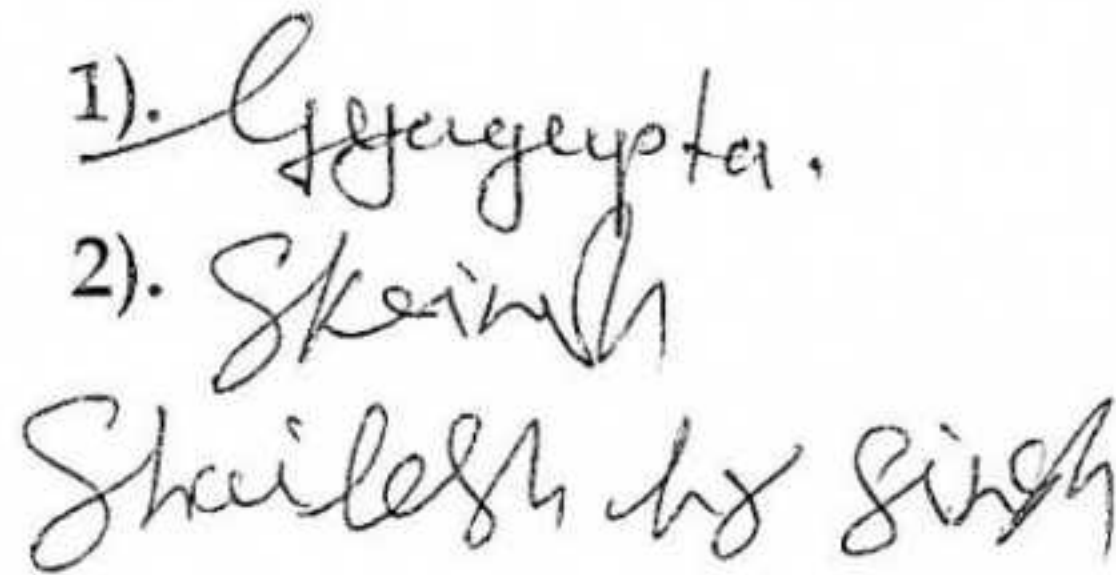 1). Gyagupta.
2). Sksingh
Shailesh Kr Singh